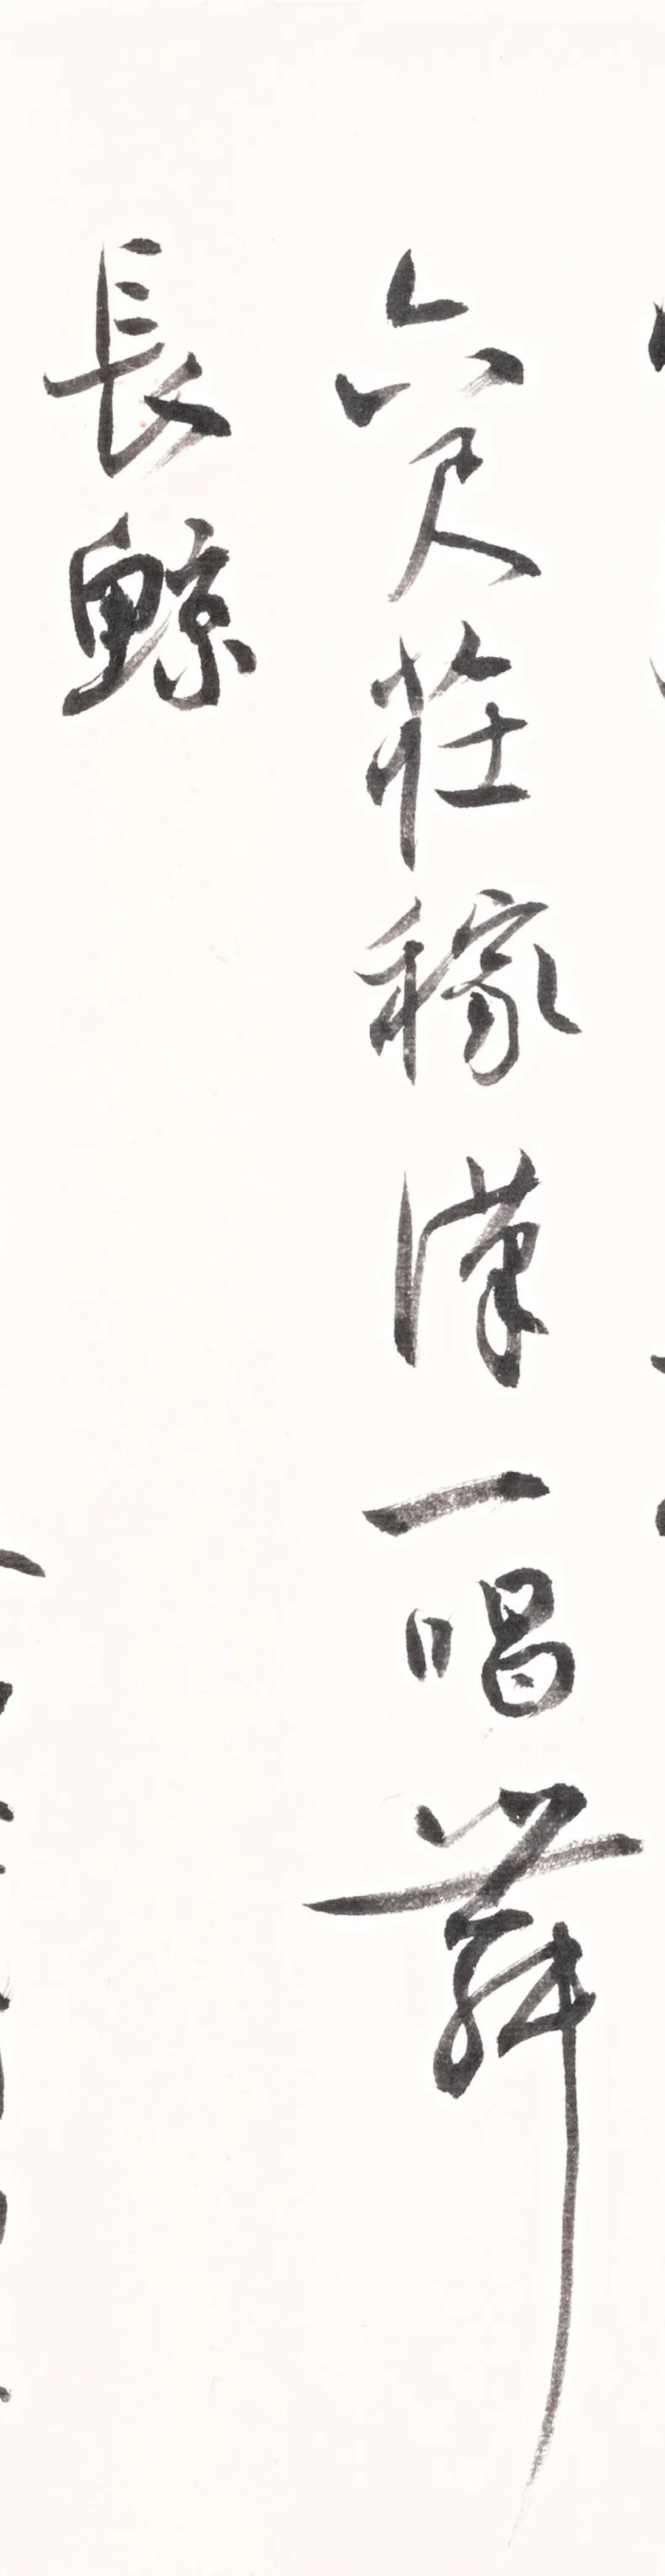 六尺莊稼漢一唱舞
長鯨